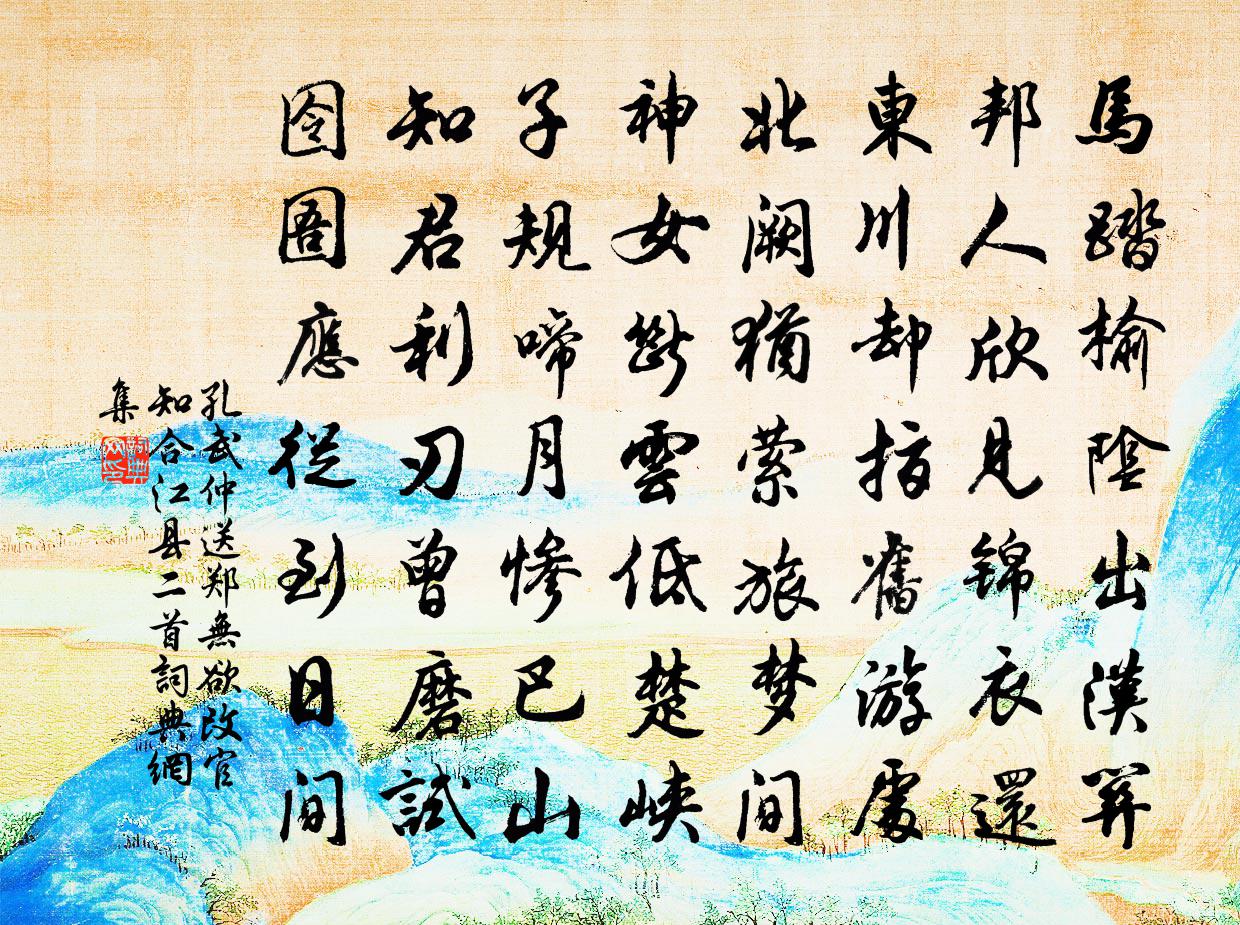 馬踏榆陰出漢關
邦人欣見錦衣還
東川却指舊游處
北闕猶縈旅夢間
神女斷雲低楚峽
子規啼月慘巴山
知君利刃曾磨試
囹圄應從到日間
孔武仲送郑無欲改官
知合江县二首詞典網
集